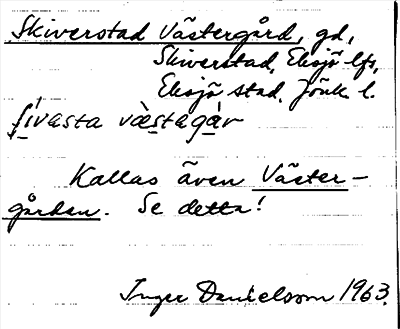 Skiverstad Västergård, gd,
Skiverstad, Eksjö lfs,
Eksjö stad. Jönk. l.
ʃívasta vàstagàr
Kallas även Väster-
gården. Se detta!
Inger Danielsson 1963.